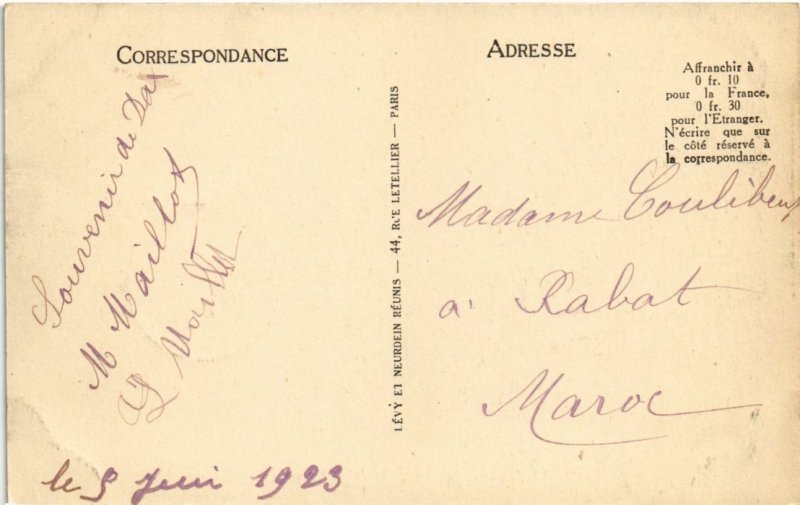 CORRESPONDANCE
Souvenir de Dax
M Maillot
le 5 Juin 1923
LÉVY ET NEURDEIN RÉUNIS — 44, RUE LETELLIER — PARIS
ADRESSE
Affranchir à
0 fr. 10
pour la France,
0 fr. 30
pour l'Etranger.
N'écrire que sur
le côté réservé à
la correspondance.
Madame
à Rabat
Maroc